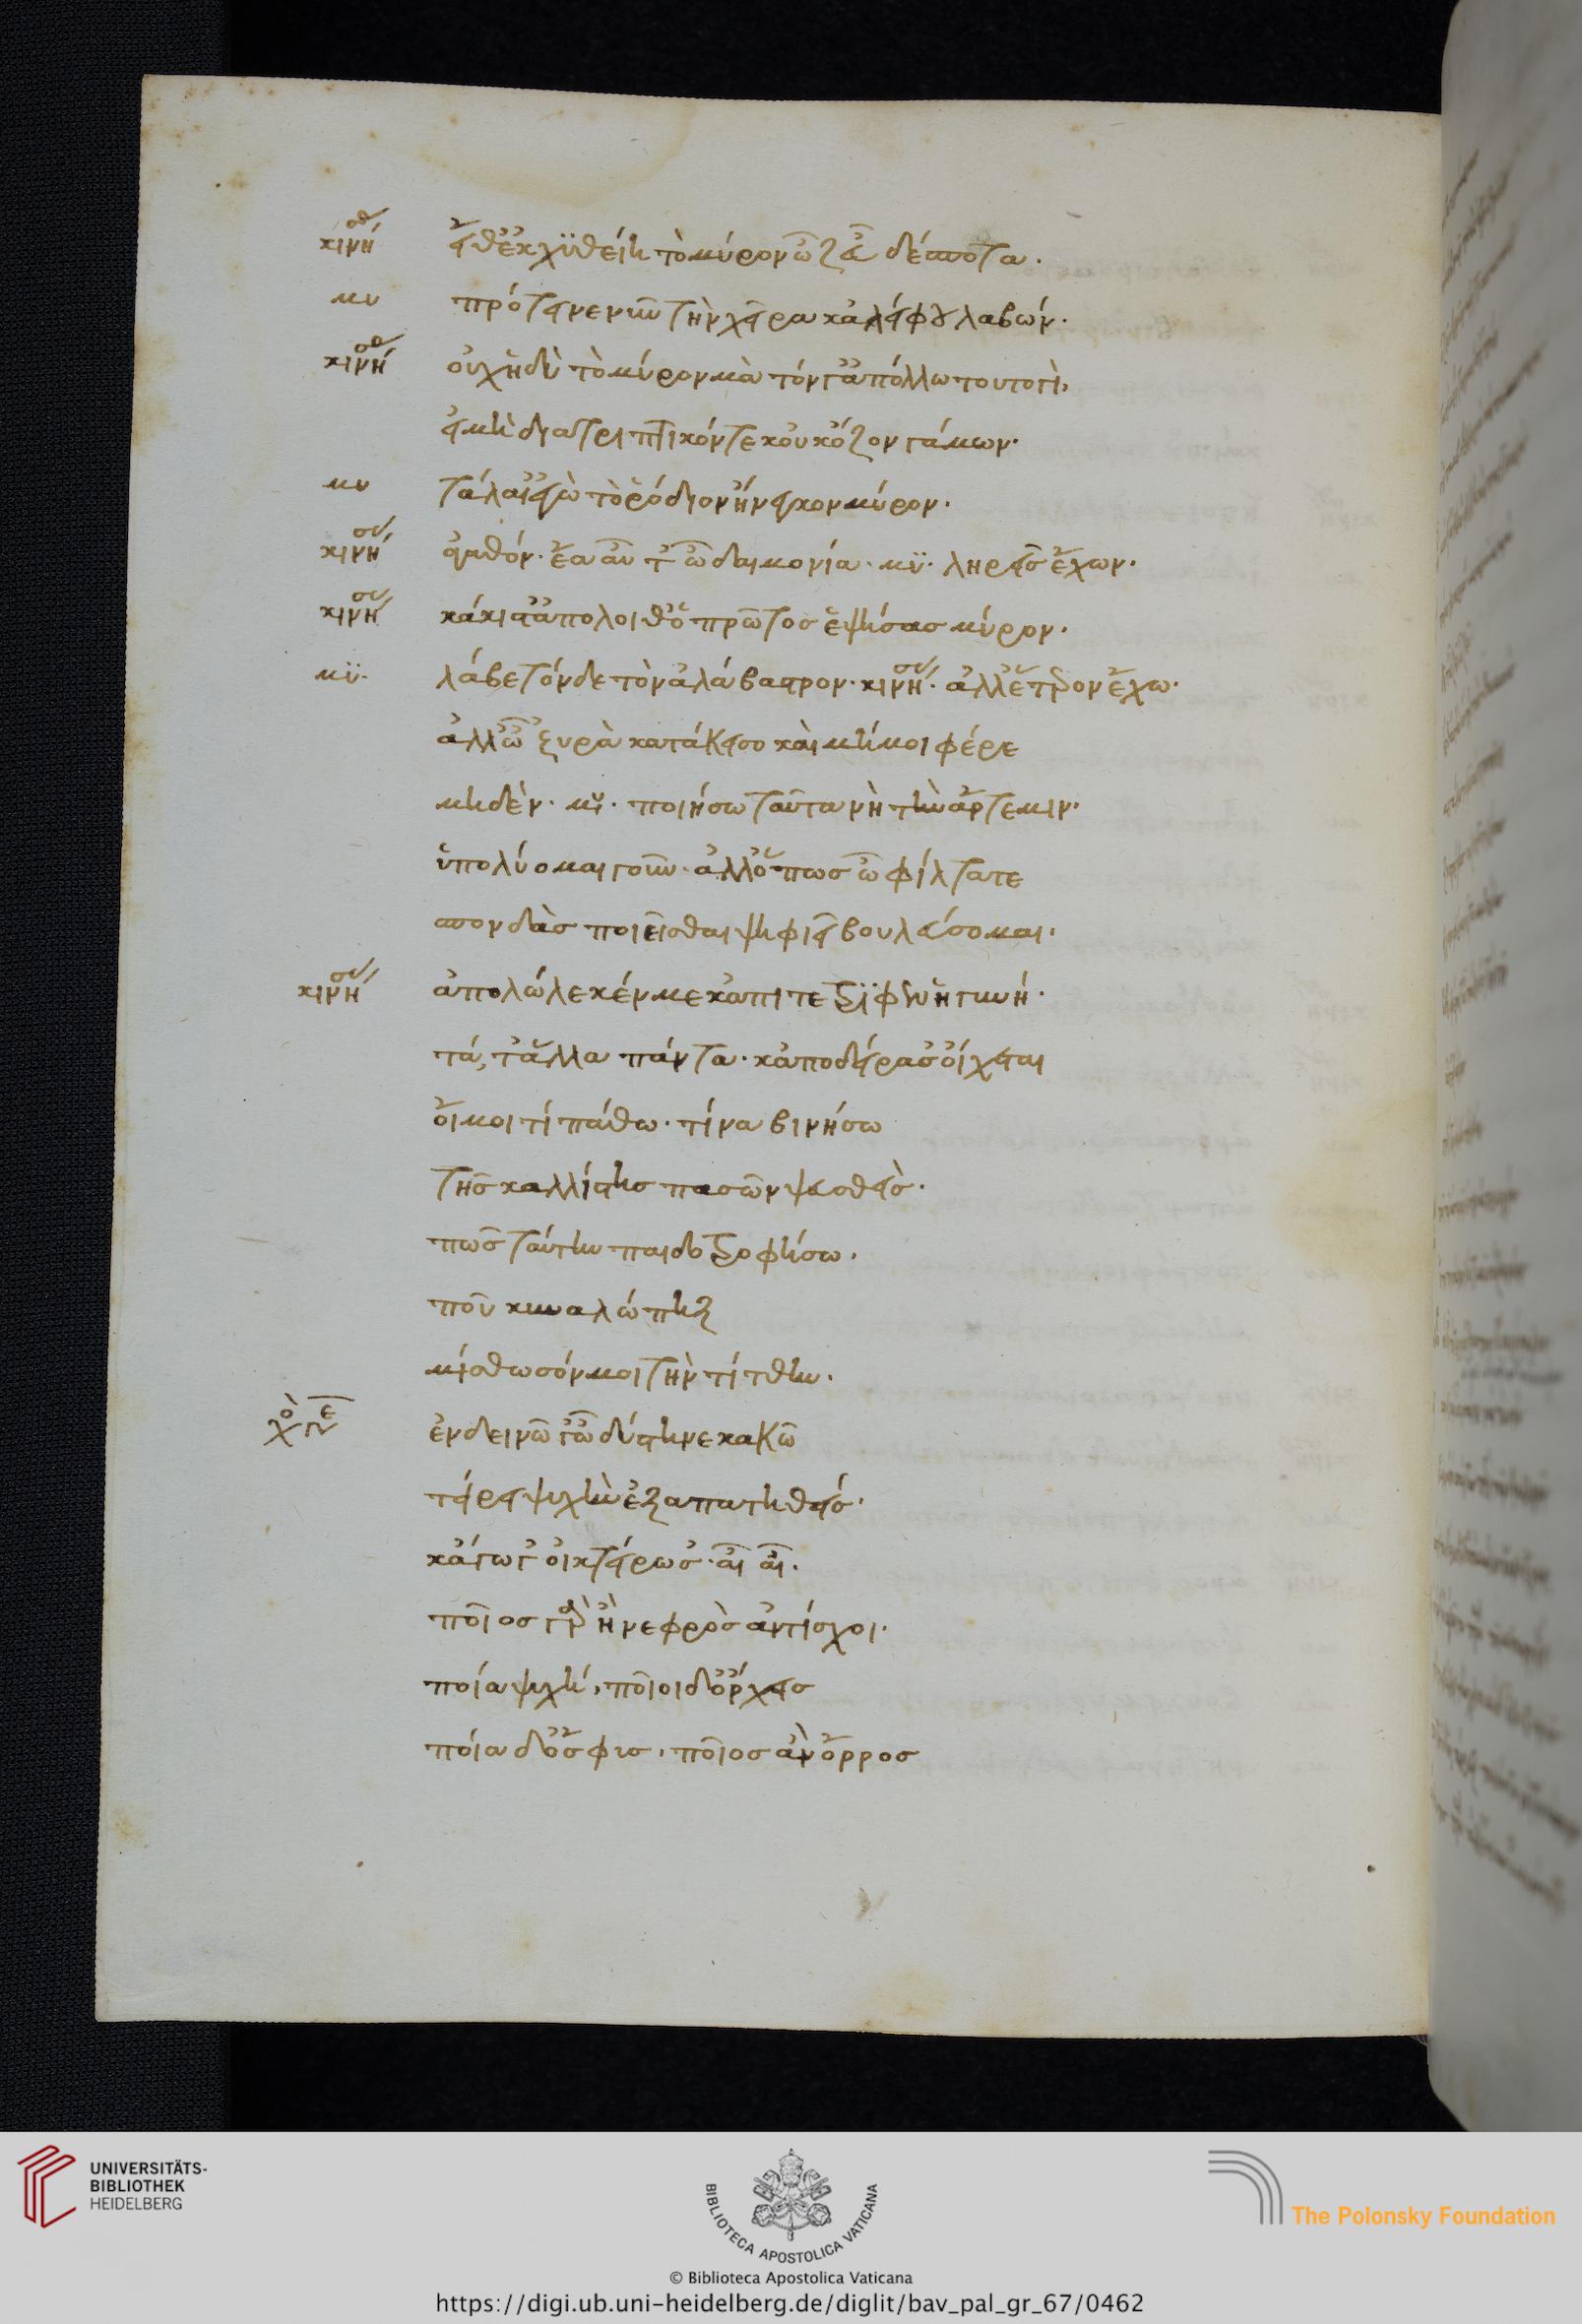 κινησ εἴθ' ἐκχυθείη τὸ μύρον ὦ ζεῦ δέσποτα.
μυ πρότεινε νῦν τὴν χεῖρα κἀλείφου λαβών.
κινησ οὐχ ἡδὺ τὸ μύρον μὰ τόν γ' ἀπόλλω τουτογὶ,
εἰ μὴ διατριπτικόν τε κοὐκ ὄζον γάμων.
μυ τάλαιν' ἐγὼ τὸ ῥόδιον ἤνεγκον μύρον.
κινησ ἀγαθόν. ἔα αὖτ' ὦ δαιμονία. μυ. ληρεῖς ἔχων.
κινησ κάκιστ' ἀπόλοιθ' ὁ πρῶτος ἑψήσας μύρον.
μυ. λάβε τόνδε τὸν ἀλάβαστρον. κινησ. ἀλλ' ἕτερον ἔχω.
ἀλλ' ὦ ξυρὰ κατάκεισο καὶ μή μοι φέρε
μηδὲν. μυ. ποιήσω ταῦτα νὴ τὴν ἄρτεμιν.
ὑπολύομαι γοῦν. ἀλλ' ὅπως ὦ φίλτατε
σπονδὰς ποιεῖσθαι ψηφιεῖ βουλεύσομαι.
κινησ ἀπολώλεκέν με κἀπιτέτριφεν ἡ γυνή.
τά, τ' ἄλλα πάντα. κἀποδείρασ' οἴχεται
οἴμοι τί πάθω. τίνα βινήσω
τῆς καλλίστης πασῶν ψευσθείς.
πῶς ταύτην παιδοτροφήσω.
ποῦ κυναλώπηξ
μίσθωσόν μοι τὴν τίτθην.
χο γε ἐν δεινῷ γ' ὦ δύστηνε κακῷ
τείρει ψυχὴν ἐξαπατηθείς.
κἄγωγ' οἰκτείρω σ'. αἶ αἶ.
ποῖος γὰρ ἢ νεφρὸς ἀντίσχοι.
ποία ψυχή, ποῖοι δ' ὄρχεις
ποία δ' ὀσφὺς, ποῖος ἂν ὄρρος
UNIVERSITÄTS-
BIBLIOTHEK
HEIDELBERG
BIBLIOTECA APOSTOLICA VATICANA
The Polonsky Foundation
© Biblioteca Apostolica Vaticana
https://digi.ub.uni-heidelberg.de/diglit/bav_pal_gr_67/0462